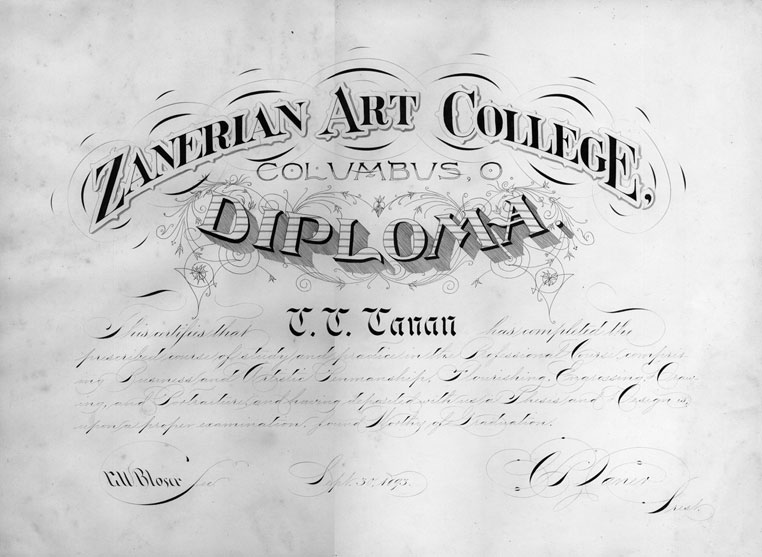 ZANERIAN ART COLLEGE,
COLUMBUS, O
DIPLOMA.
This certifies that C. C. Canan has completed the
prescribed course of study and practice in the Professional Course compris-
ing Business and Artistic Penmanship, Flourishing, Engrossing, Draw-
ing, and Portraiture, and having deposited with us a Thesis and Design is,
upon proper examination, found Worthy of Graduation.
E.W. Bloser Sec. Sept. 1893. C P Zaner
Prest.